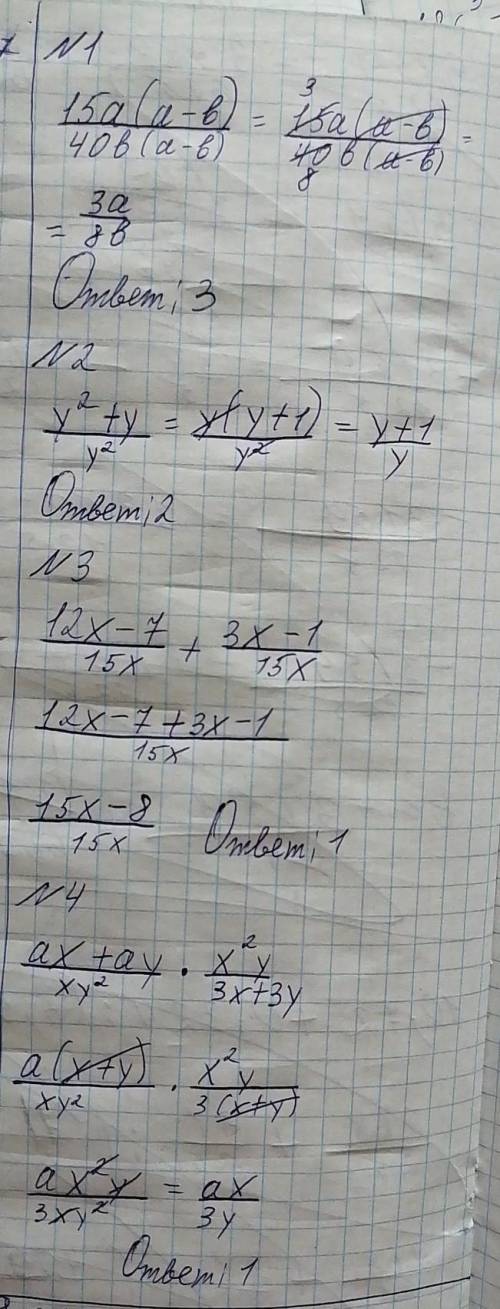 N1
15a(a-b)/40b(a-b) = 15a(a-b)/40b(a-b) =
3
8
= 3a/8b
Ответ; 3
N2
y²+y/y² = y(y+1)/y² = y+1/y
Ответ; 2
N3
12x-7/15x + 3x-1/15x
12x-7+3x-1/15x
15x-8/15x Ответ; 1
N4
ax+ay/xy² · x²y/3x+3y
a(x+y)/xy² · x²y/3(x+y)
ax²y/3xy² = ax/3y
Ответ; 1